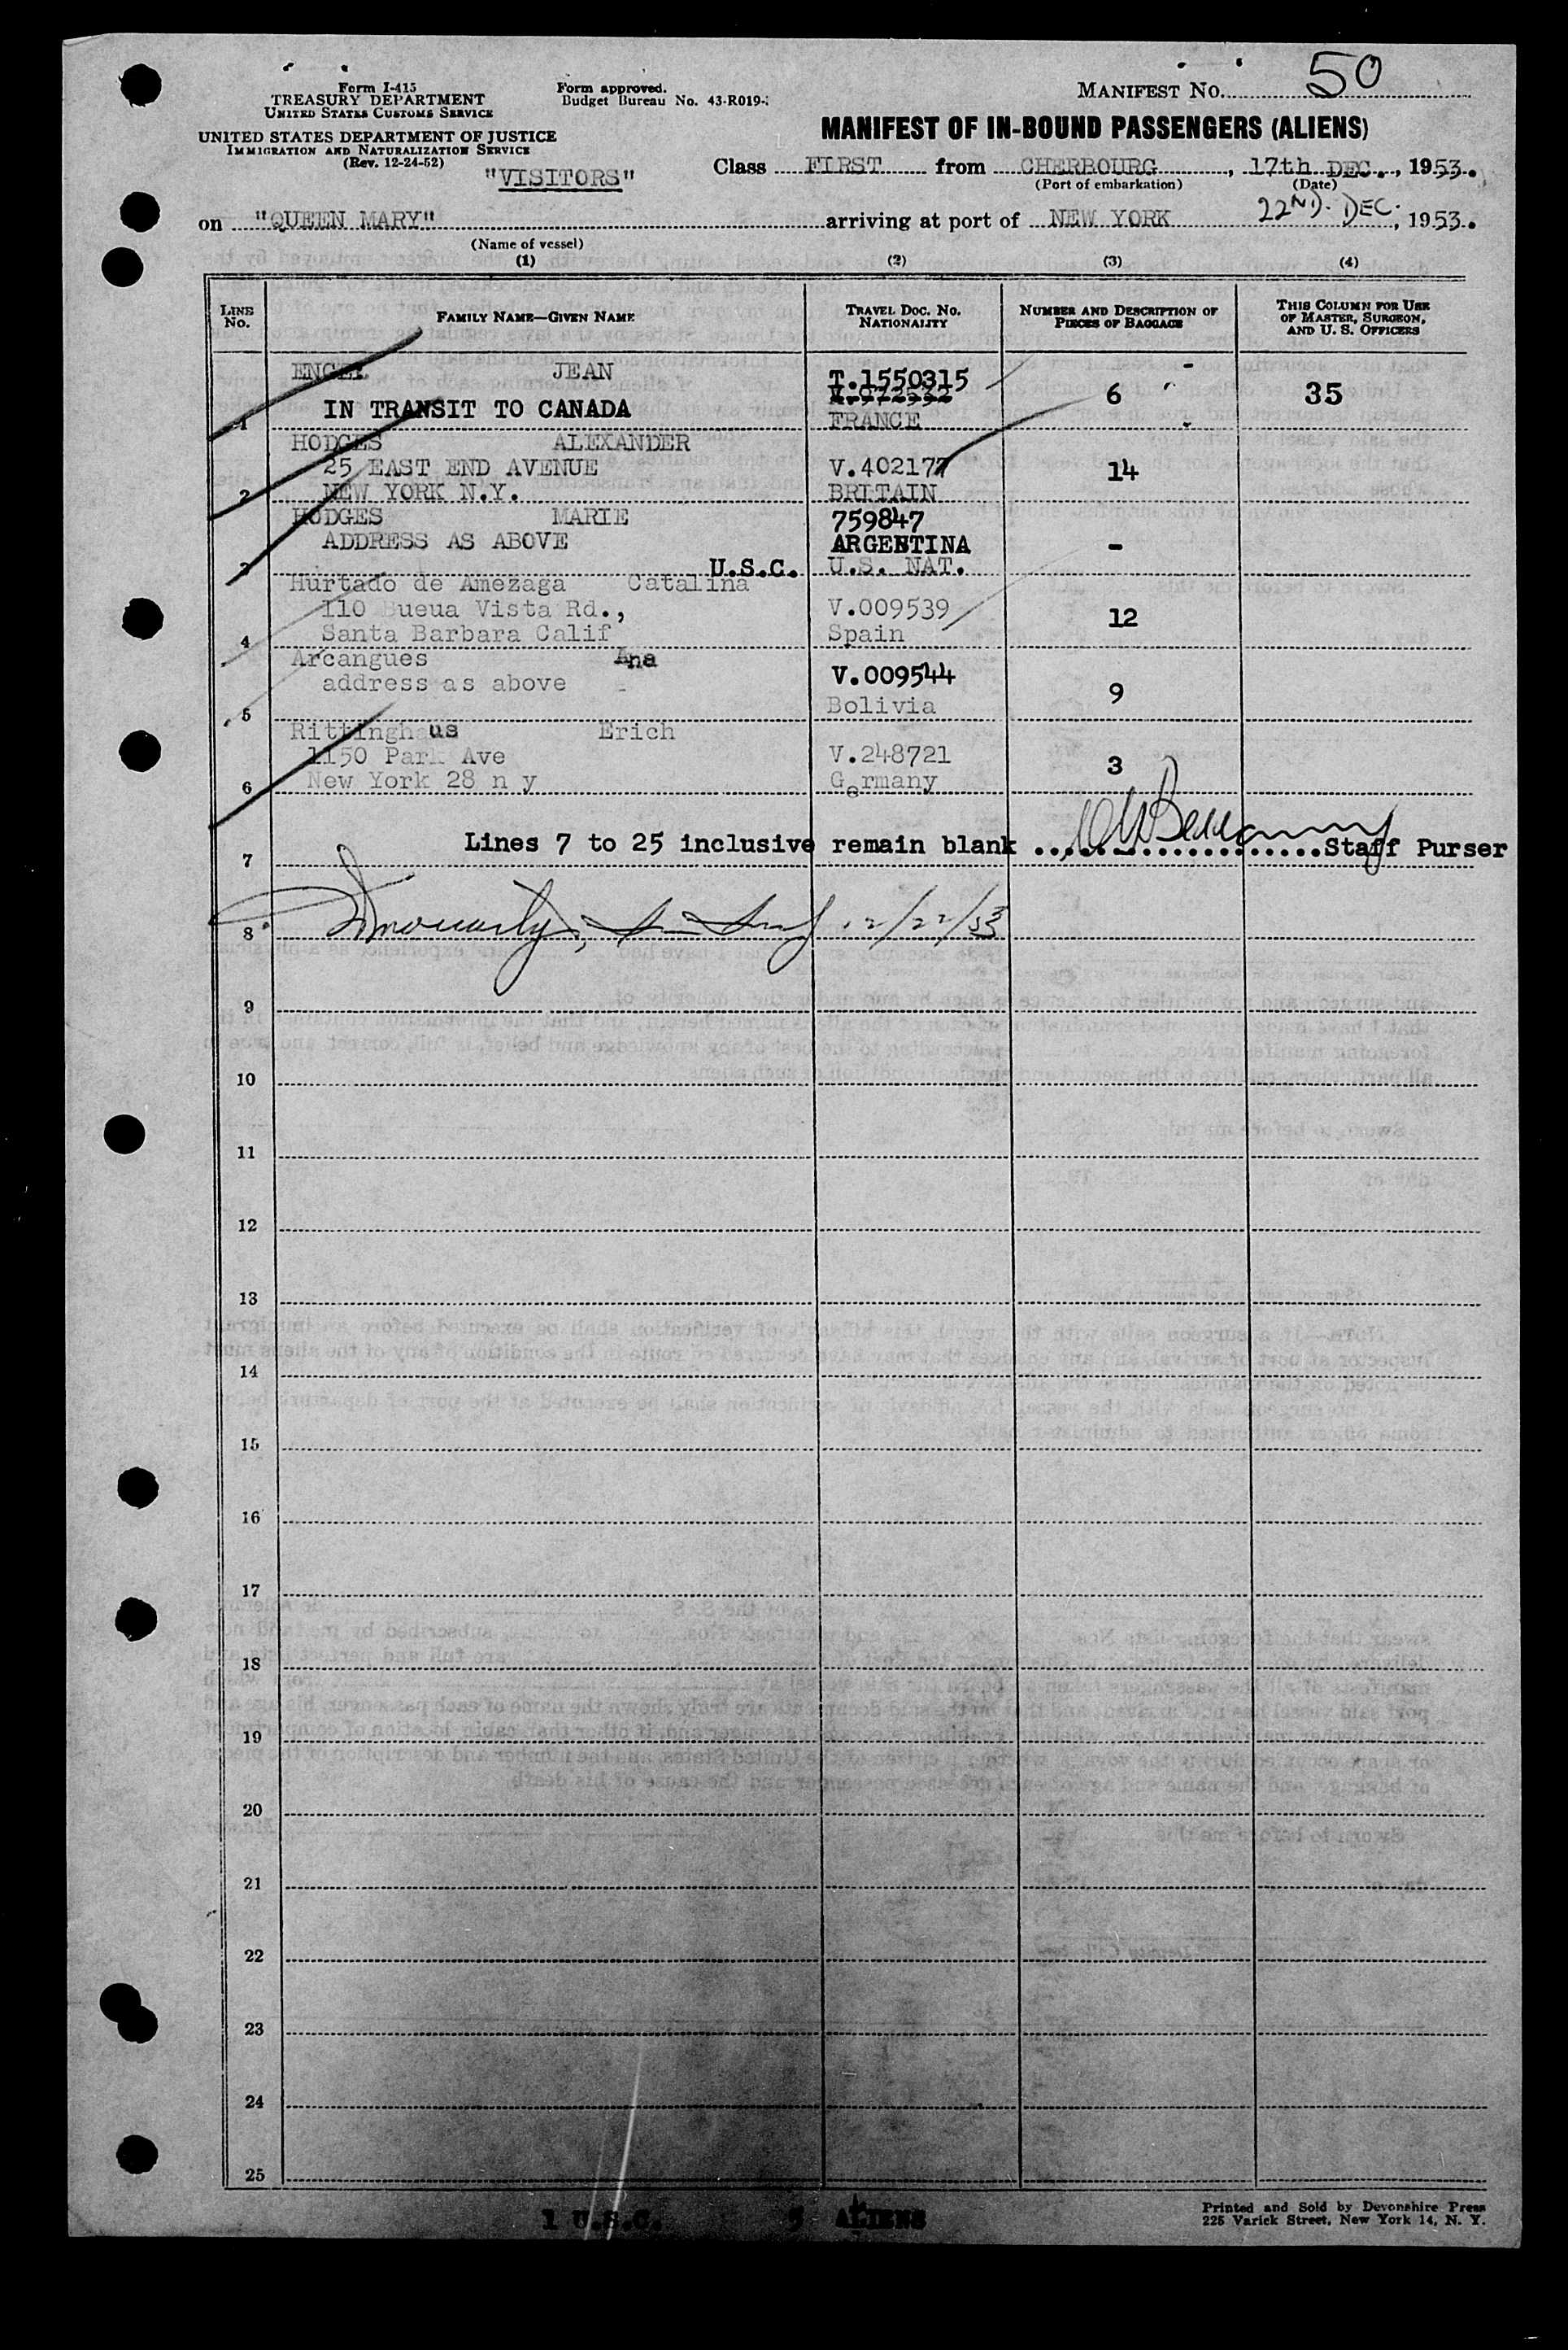 Form I-415
TREASURY DEPARTMENT
UNITED STATES CUSTOMS SERVICE
UNITED STATES DEPARTMENT OF JUSTICE
IMMIGRATION AND NATURALIZATION SERVICE
(Rev. 12-24-52)
Form approved.
Budget Bureau No. 43-R019-
MANIFEST NO. 50
MANIFEST OF IN-BOUND PASSENGERS (ALIENS)
"VISITORS"
Class FIRST from CHERBOURG, 17th DEC., 1953.
(Port of embarkation) (Date)
on "QUEEN MARY" arriving at port of NEW YORK 22ND. DEC., 1953.
(Name of vessel)
(1) (2) (3) (4)
LINE NO. FAMILY NAME—GIVEN NAME TRAVEL DOC. NO. NATIONALITY NUMBER AND DESCRIPTION OF PIECES OF BAGGAGE THIS COLUMN FOR USE OF MASTER, SURGEON, AND U. S. OFFICERS
ENGEL JEAN T.1550315
V.972532
IN TRANSIT TO CANADA 6 35
1 FRANCE
HODGES ALEXANDER
25 EAST END AVENUE V.402177 14
2 NEW YORK N.Y. BRITAIN
HODGES MARIE 759847
ADDRESS AS ABOVE ARGENTINA -
3 U.S.C. U.S. NAT.
Hurtado de Amezaga Catalina
110 Bueua Vista Rd., V.009539 12
4 Santa Barbara Calif Spain
Arcangues Ana
address as above V.009544 9
5 Bolivia
Rittinghaus Erich
1150 Park Ave V.248721 3
6 New York 28 n y Germany
7 Lines 7 to 25 inclusive remain blank ....................Staff Purser
8 12/22/53
9
10
11
12
13
14
15
16
17
18
19
20
21
22
23
24
25
1 U.S.C. 5 ALIENS
Printed and Sold by Devonshire Press
225 Varick Street, New York 14, N. Y.